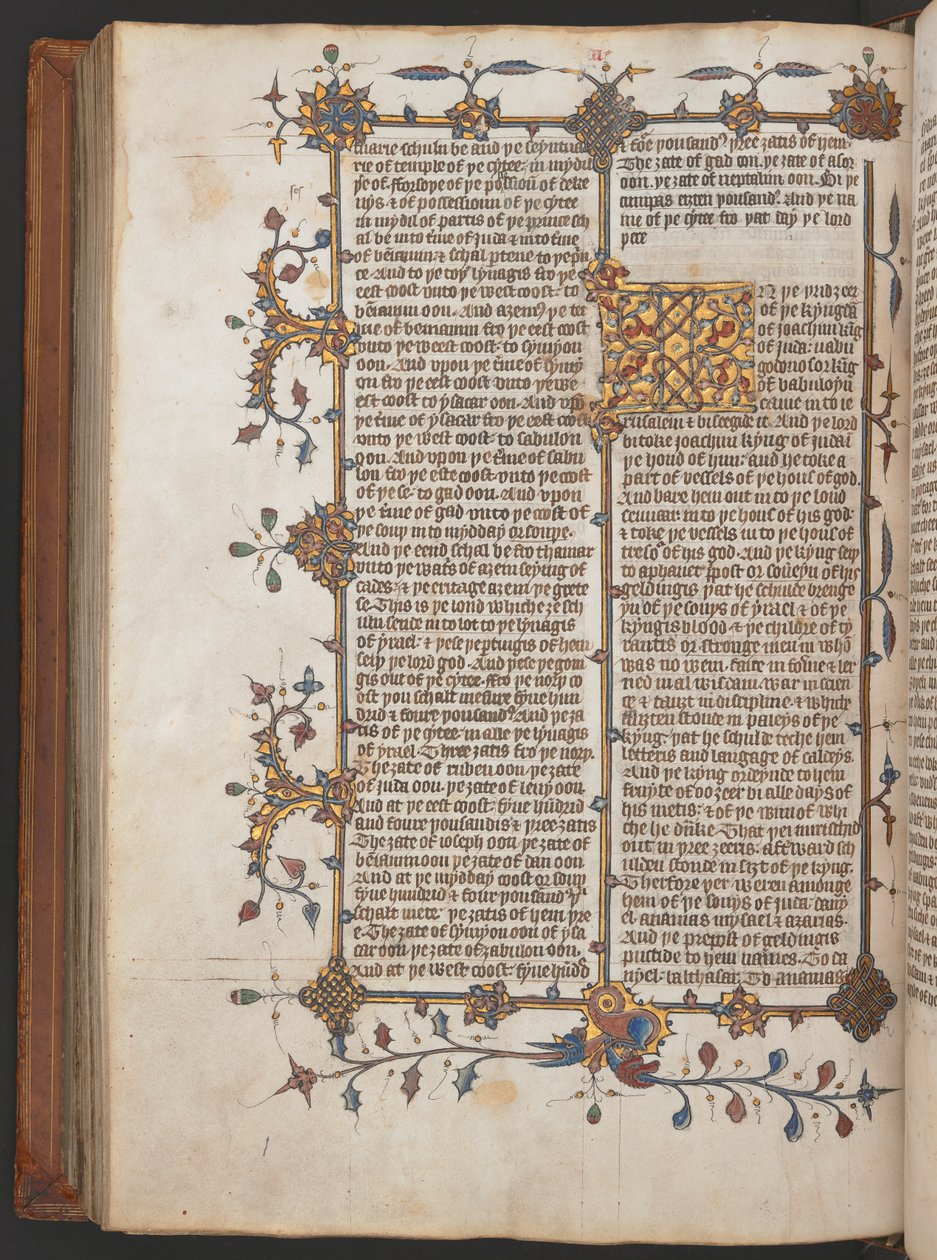 tuarie schuln be and ye seyntua
rie of temple of ye cytee in myddil
ye of. fforsoye of ye possessioun of deke
nys & of possessioun of ye cytee
in mydil of partis of ye prince sch
al be in to t̄me of juda & in to t̄me
of beniamin & schal ptene to ye p̄n
ce. And to ye toy lynagis fro ye
eest coost vnto ye west coost: to
beniamin oon. And azemˢ ye ter
me of beniamin fro ye eest coost
vnto ye weest coost: to symyon
oon. And vpon ye t̄me of symy
on fro ye eest coost vnto ye we
est coost to ysacar oon. And vpō
ye t̄me of ysacar fro ye eest coost
vnto ye west coost: to zabulon
oon. And vpon ye t̄me of zabu
lon fro ye este coost. vnto ye coost
of ye se: to gad oon. And vpon
ye t̄me of gad vnto ye coost of
ye souy in to mydday or souye.
And ye eend schal be fro thamar
vnto ye wat̄s of azein seying of
cades: & ye eritage azein ye grete
se. This is ye lond whiche ze sch
uln sende in to lot to ye lynagis
of yrael: & yese ꝑtingis of hem
seiy ye lord god. And yese ye goin
gis out of ye cytee. ffro ye nory co
ost you schalt mesure fyue hun
drid & foure yousandˢ. And ye za
tis of ye cytee in alle ye lynagis
of yrael. Three zatis fro ye nory.
The zate of ruben oon. ye zate
of juda oon. ye zate of leuy oon.
And at ye eest coost: fyue hūdrid
and foure yousandis & yree zatis
The zate of ioseph oon. ye zate of
beniamin oon ye zate of dan oon
And at ye mydday coost or souy
fyue hundrid & foure yousandˢ yᵘ
schalt mete. ye zatis of hem yre
e. The zate of symyon oon of ysa
car oon. ye zate of zabulon oon.
And at ye west coost: fyue hūdrid
& foure yousandˢ yree zatis of hem.
The zate of gad oon. ye zate of aser
oon. ye zate of neptalim oon. Bi ye
cumpas eizten yousandˢ. And ye na
me of ye cytee fro yat day ye lord
yere
IN ye yrid zeer
of ye kyngdā
of joachim kīg
of juda: nabu
godonosor kīg
of babiloyn
came in to ie
rusalem & biseegide it. And ye lord
bitoke joachim kyng of judā in
ye hond of hym: and he toke a
part of vessels of ye hous of god.
And bare hem out in to ye lond
sennaar in to ye hous of his god:
& toke ye vessels in to ye hous of
tresoʳ of his god. And ye kyng seiy
to asphanet ꝓpost or souereyn of his
geldingis yat he schulde brenge
yn of ye sonys of yrael & of ye
kyngis blood & ye childre of ty
rantis or stronge men in whō
was no wem. faire in foʳme & ler
ned in al wisdam. war in scien
ce & tauzt in discipline. & whiche
mizten stonde in paleys of ye
kyng. yat he schulde teche hem
letteris and langage of caldeys.
And ye kyng ordeynde to hem
fruyte of oo zeer bi alle days of
his metis: & of ye wijn of whi
che he dranke. That yei nurischid
out in yree zeeris: aftward sch
ulden stonde in sizt of ye kyng.
Therfore yer weren amonge
hem of ye sonys of juda: dany
el ananias mysael & azarias.
And ye prepost of geldingis
puttide to hem names. To da
nyel: balthasar To ananias